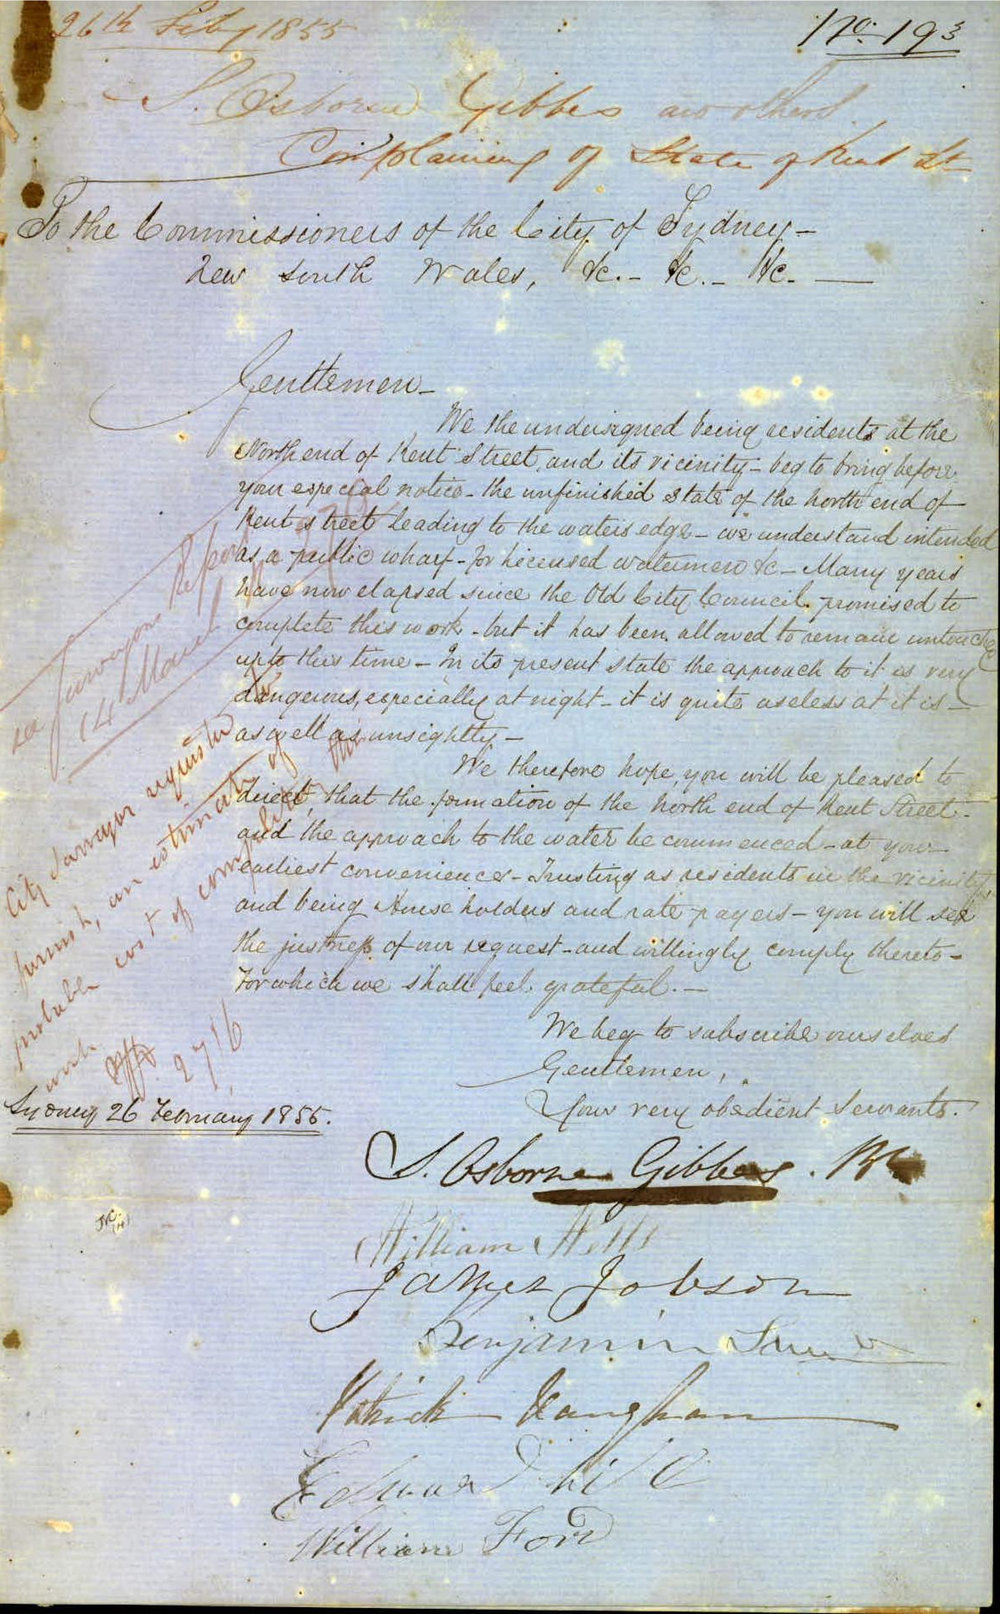 26th Feby 1855
No. 193
S. Osborne Gibbes and others
Complaining of State of Kent St
To the Commissioners of the City of Sydney -
New South Wales, &c. - &c. - &c. -
Gentlemen -
We the undersigned being residents at the
North end of Kent Street, and its vicinity - beg to bring before
your especial notice - the unfinished state of the north end of
Kent Street leading to the waters edge - we understand intended
as a public wharf - for licensed watermen &c - Many years
have now elapsed since the Old City Council promised to
complete this work - but it has been allowed to remain untouched
up to this time - In its present state the approach to it is very
dangerous, especially at night - it is quite useless at it is -
as well as unsightly -
We therefore hope you will be pleased to
direct, that the formation of the north end of Kent Street -
and the approach to the water be commenced - at your
earliest convenience - Trusting as residents in the vicinity,
and being House holders and rate payers - you will see
the justness of our request - and willingly comply thereto -
For which we shall feel grateful. -
We beg to subscribe ourselves
Gentlemen,
Your very obedient Servants.
Sydney 26 February 1855.
Report
14 March
City Surveyor requested
furnish, an estimate of
probable cost of completing this
work
27/6
S. Osborne Gibbes.
William
James Jobson
Benjamin
Patrick Vaughan
Edward
William Ford